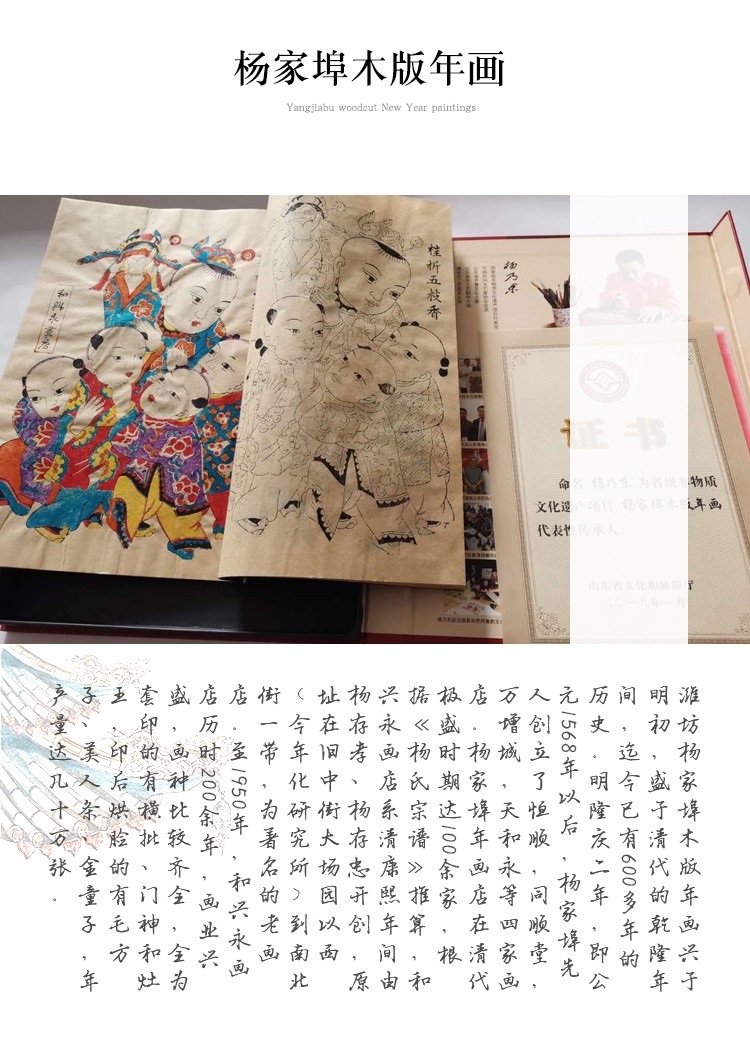 杨家埠木版年画
Yangjiabu woodcut New Year paintings
桂折五枝香
杨乃东
证书
命名 杨乃东 为省级非物质
文化遗产项目 杨家埠木版年画
代表性传承人
山东省文化和旅游厅
潍坊杨家埠木版年画兴于
明初，盛于清代的乾隆年
间，迄今已有600多年的
历史。明隆庆二年，即公
元1568年以后，杨家埠先
人创立了恒顺，同顺堂，
万增城，天和永等四家画
店。杨家埠年画店在清代
极盛时期达100余家，根
据《杨氏宗谱》推算，和
兴永画店系清康熙年间由
杨存孝、杨存忠开创，原
址在旧中街大场园以西
（今年化研究所）到南北
街一带，为著名的老画
店。至1950年，和兴永画
店历时200余年，画业兴
盛，画种比较齐全，全为
套印的有横批、门神和灶
王，印后烘脸的有毛方
子、美人条、金童子，年
产量达几十万张。